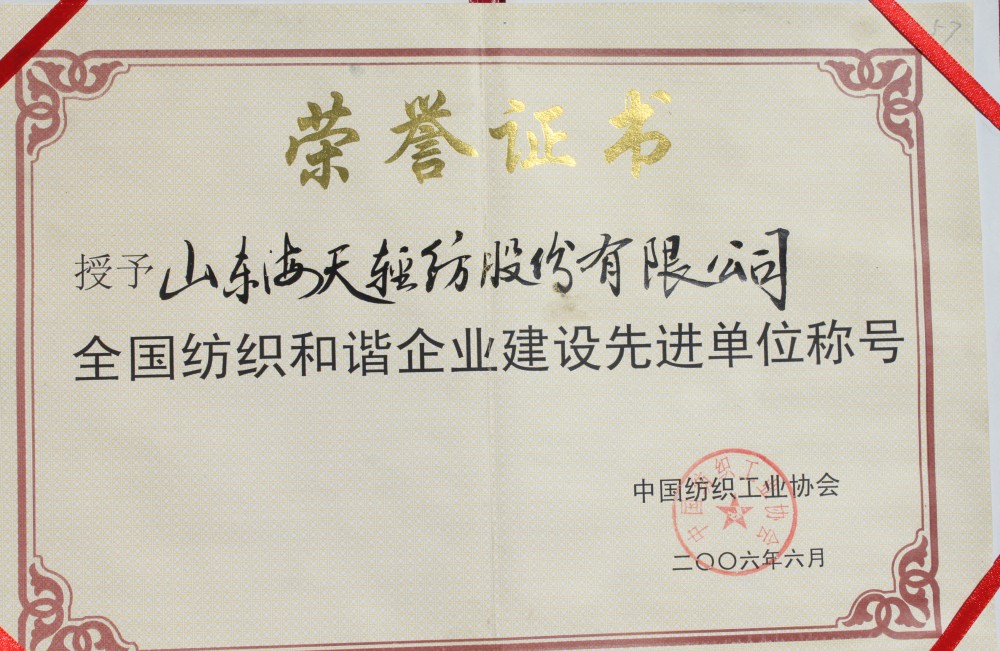 57
荣誉证书
授予山东海天轻纺股份有限公司
全国纺织和谐企业建设先进单位称号
中国纺织工业协会
中国纺织工业协会
二〇〇六年六月